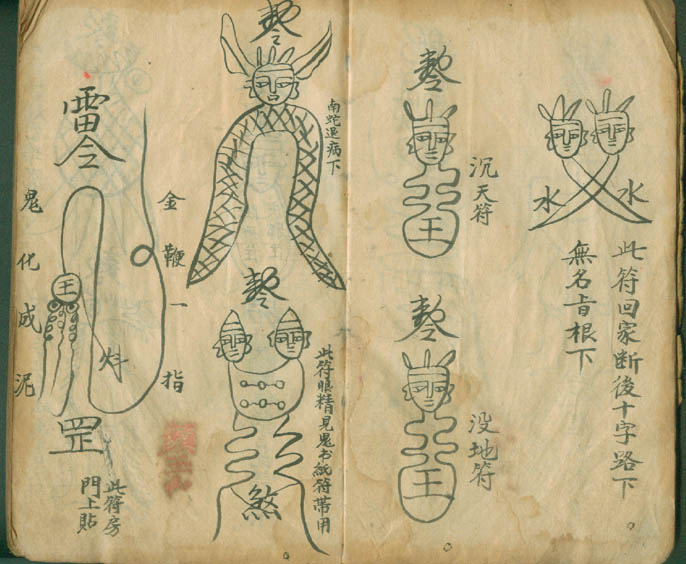 水
水
此符回家断後十字路下
無名旨根下
沉天符
王
没地符
王
南蛇退病下
此符眼精見鬼书紙符帶用
煞
雷令
金鞭一指
鬼化成泥
王
罡
此符房
門上貼